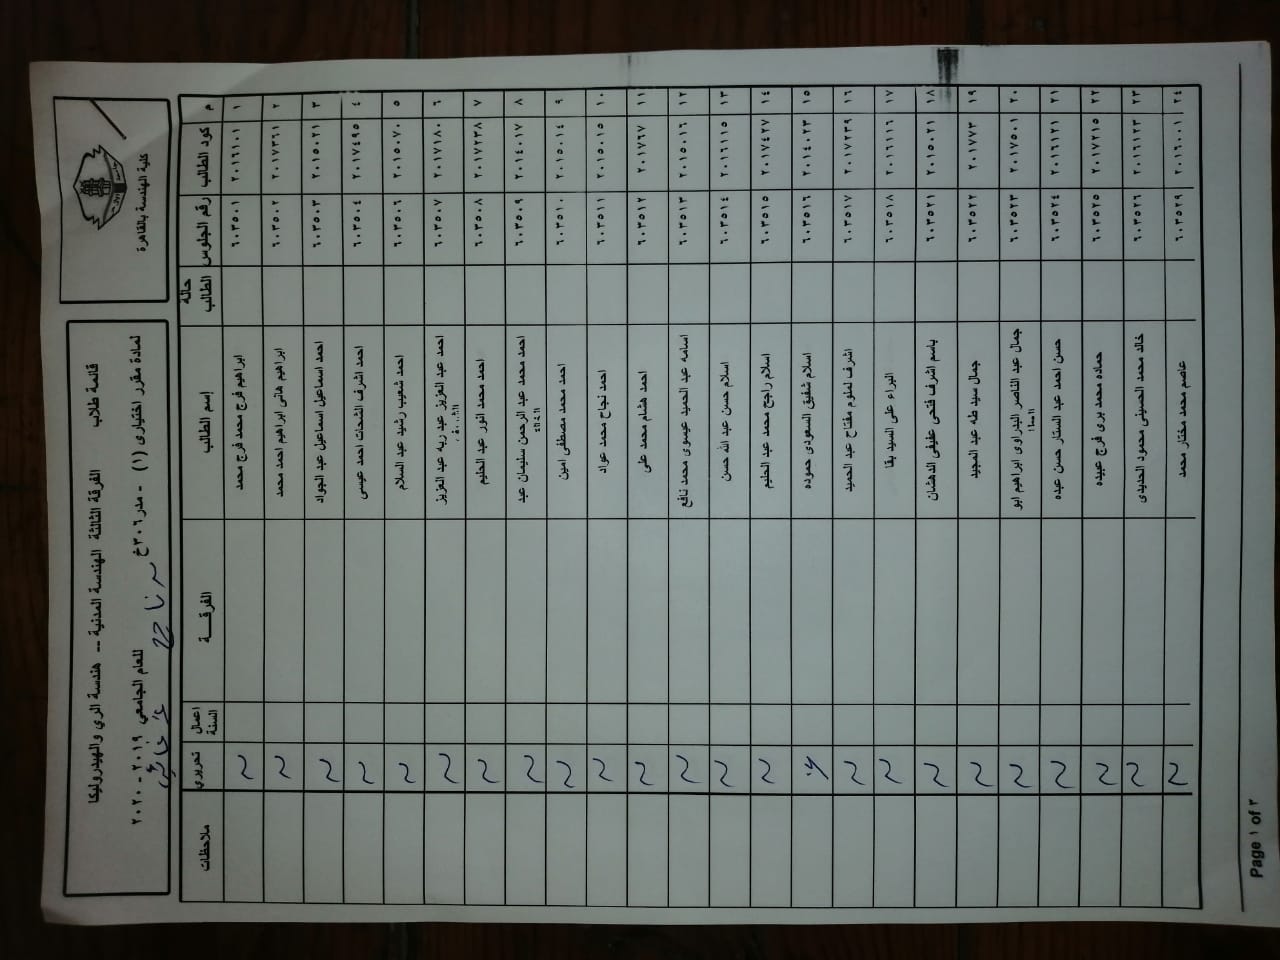 كلية الهندسة بالقاهرة
قائمة طلاب الفرقة الثالثة الهندسة المدنية -- هندسة الري والهيدروليكا
لمادة مقرر اختيارى (١) - مدر٣٠٦خ للعام الجامعي ٢٠١٩ - ٢٠٢٠
م كود الطالب رقم الجلوس حالة الطالب إسم الطالب الفرقة اعمال السنة تحريري ملاحظات
١ ٢٠١٦١٠١ ٦٠٣٥٠١ ابراهيم فرج محمد فرج محمد
٢ ٢٠١٧٣٦١ ٦٠٣٥٠٢ ابراهيم هانى ابراهيم احمد محمد
٣ ٢٠١٥٠٢١ ٦٠٣٥٠٣ احمد اسماعيل اسماعيل عبد الجواد
٤ ٢٠١٧٤٩٥ ٦٠٣٥٠٤ احمد اشرف الشحات احمد عيسى
٥ ٢٠١٥٠٧٠ ٦٠٣٥٠٦ احمد شعيب رشيد عبد السلام
٦ ٢٠١٧١٨٠ ٦٠٣٥٠٧ احمد عبد العزيز عبد ربه عبد العزيز
٧ ٢٠١٧٢٣٨ ٦٠٣٥٠٨ احمد محمد انور عبد الحليم
٨ ٢٠١٤٠١٧ ٦٠٣٥٠٩ احمد محمد عبد الرحمن سليمان عبد
٩ ٢٠١٥٠١٤ ٦٠٣٥١٠ احمد محمد مصطفى امين
١٠ ٢٠١٥٠١٥ ٦٠٣٥١١ احمد نجاح محمد عواد
١١ ٢٠١٧٦٧ ٦٠٣٥١٢ احمد هشام محمد على
١٢ ٢٠١٥٠١٦ ٦٠٣٥١٣ اسامه عبد الحميد عيسوى محمد نافع
١٣ ٢٠١٦١١٥ ٦٠٣٥١٤ اسلام حسن عبد الله حسن
١٤ ٢٠١٧٤٢٧ ٦٠٣٥١٥ اسلام راجح محمد عبد الحليم
١٥ ٢٠١٤٠٢٣ ٦٠٣٥١٦ اسلام شفيق السعودى حموده
١٦ ٢٠١٧٢٣٩ ٦٠٣٥١٧ اشرف لملوم مفتاح عبد الحميد
١٧ ٢٠١٦١١٦ ٦٠٣٥١٨ البراء على السيد بقا
١٨ ٢٠١٥٠٢١ ٦٠٣٥٢١ باسم اشرف فتحى عفيفى الدهشان
١٩ ٢٠١٧٧٣ ٦٠٣٥٢٢ جمال سيد طه عبد المجيد
٢٠ ٢٠١٧٥٠١ ٦٠٣٥٢٣ جمال عبد الناصر البدراوى ابراهيم ابو
٢١ ٢٠١٦١٢١ ٦٠٣٥٢٤ حسن احمد عبد الستار حسن عبده
٢٢ ٢٠١٧٢١٥ ٦٠٣٥٢٥ حماده محمد برى فرج عبيده
٢٣ ٢٠١٦١٢٣ ٦٠٣٥٢٦ خالد محمد الحسينى محمود الحديدى
٢٤ ٢٠١٦٠٠١ ٦٠٣٥٢٩ عاصم محمد مختار محمد
Page ١ of ٣